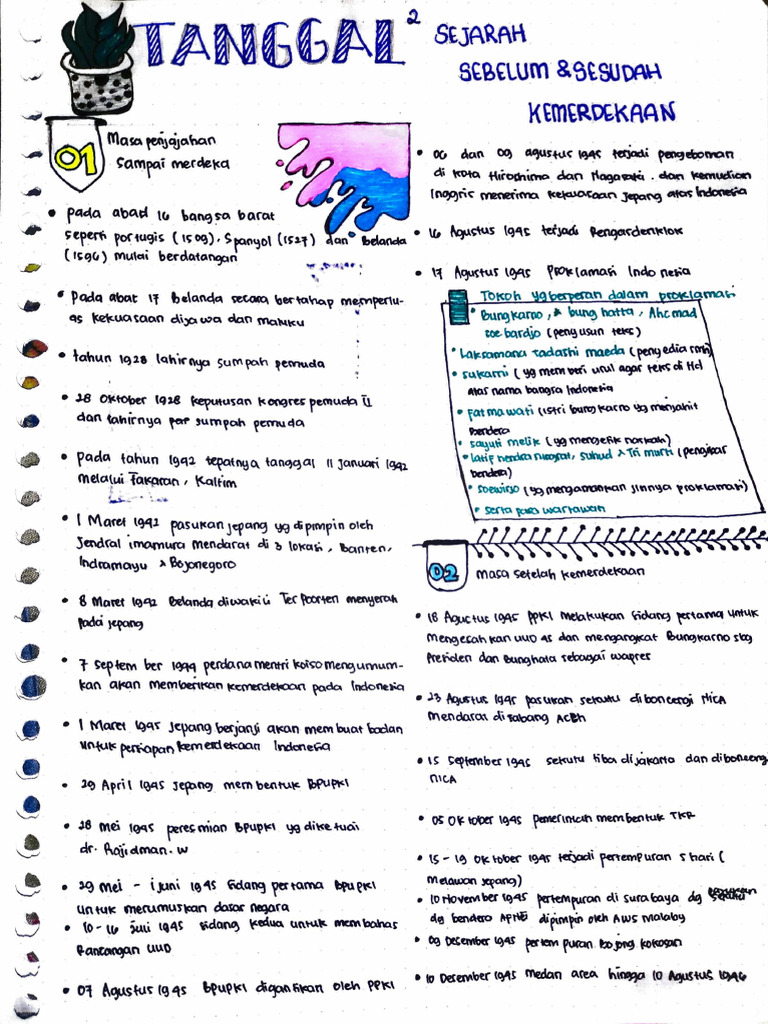 TANGGAL²
SEJARAH
SEBELUM & SESUDAH
KEMERDEKAAN
01
Masa penjajahan
Sampai merdeka
• pada abad 16 bangsa barat
seperti portugis (1509), Spanyol (1527) dan Belanda
(1596) mulai berdatangan
• pada abat 17 Belanda secara bertahap memperlu-
as kekuasaan dijawa dan maluku
• tahun 1928 lahirnya sumpah pemuda
• 28 Oktober 1928 keputusan kongres pemuda II
dan lahirnya sumpah pemuda
• pada tahun 1942 tepatnya tanggal 11 januari 1942
melalui Tarakan, Kaltim
• 1 Maret 1942 pasukan jepang yg dipimpin oleh
Jendral imamura mendarat di 3 lokasi, Banten,
Indramayu & Bojonegoro
• 8 Maret 1942 Belanda diwakili Ter Poorten menyerah
pada jepang
• 7 September 1944 perdana mentri koiso mengumum-
kan akan memberikan kemerdekaan pada Indonesia
• 1 Maret 1945 Jepang berjanji akan membuat badan
untuk persiapan kemerdekaan Indonesia
• 29 April 1945 jepang membentuk BPUPKI
• 28 mei 1945 peresmian BPUPKI yg diketuai
dr. Rajidman. w
• 29 mei - 1 juni 1945 Sidang pertama BPUPKI
untuk merumuskan dasar negara
• 10 - 16 juli 1945 sidang kedua untuk membahas
Rancangan UUD
• 07 Agustus 1945 BPUPKI digantikan oleh PPKI
• 06 dan 09 agustus 1945 terjadi pengeboman
di kota Hiroshima dan Nagasaki. dan kemudian
Inggris menerima kekuasaan jepang atas Indonesia
• 16 Agustus 1945 terjadi Rengasdenklok
• 17 Agustus 1945 Proklamasi Indonesia
Tokoh yg berperan dalam proklamasi
• Bung karno, & bung hatta, Ahcmad
soebardjo (penyusun teks)
• Laksamana tadashi maeda (penyedia rmh)
• sukarni (yg memberi usul agar teks di ttd
atas nama bangsa Indonesia
• fatmawati (istri bung karno yg menjahit
bendera
• sayuti melik (yg mengetik naskah)
• latif hendraningrat, suhud & Tri murti (pengibar
bendera)
• soewirjo (yg mengamankan jlnnya proklamasi)
• serta para wartawan
02
masa setelah kemerdekaan
• 18 Agustus 1945 PPKI melakukan sidang pertama untuk
mengesahkan UUD 45 dan mengangkat Bungkarno sbg
Presiden dan Bunghata sebagai wapres
• 23 Agustus 1945 pasukan sekutu diboncengi NICA
mendarat di sabang Aceh
• 15 September 1945 sekutu tiba dijakarta dan dibonceng
NICA
• 05 Oktober 1945 pemerintah membentuk TKR
• 15 - 19 Oktober 1945 terjadi pertempuran 5 hari (
melawan jepang)
• 10 November 1945 pertempuran di surabaya dg sekutu
dg bendera AFNEI dipimpin oleh AWS malaby
• 09 Desember 1945 pertempuran Bojong kokosan
• 10 Desember 1945 medan area hingga 10 Agustus 1946